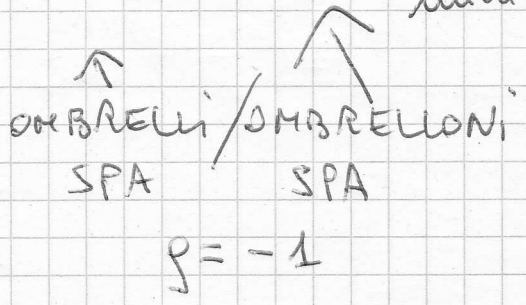 OMBRELLI / OMBRELLONI
SPA SPA
ρ = -1